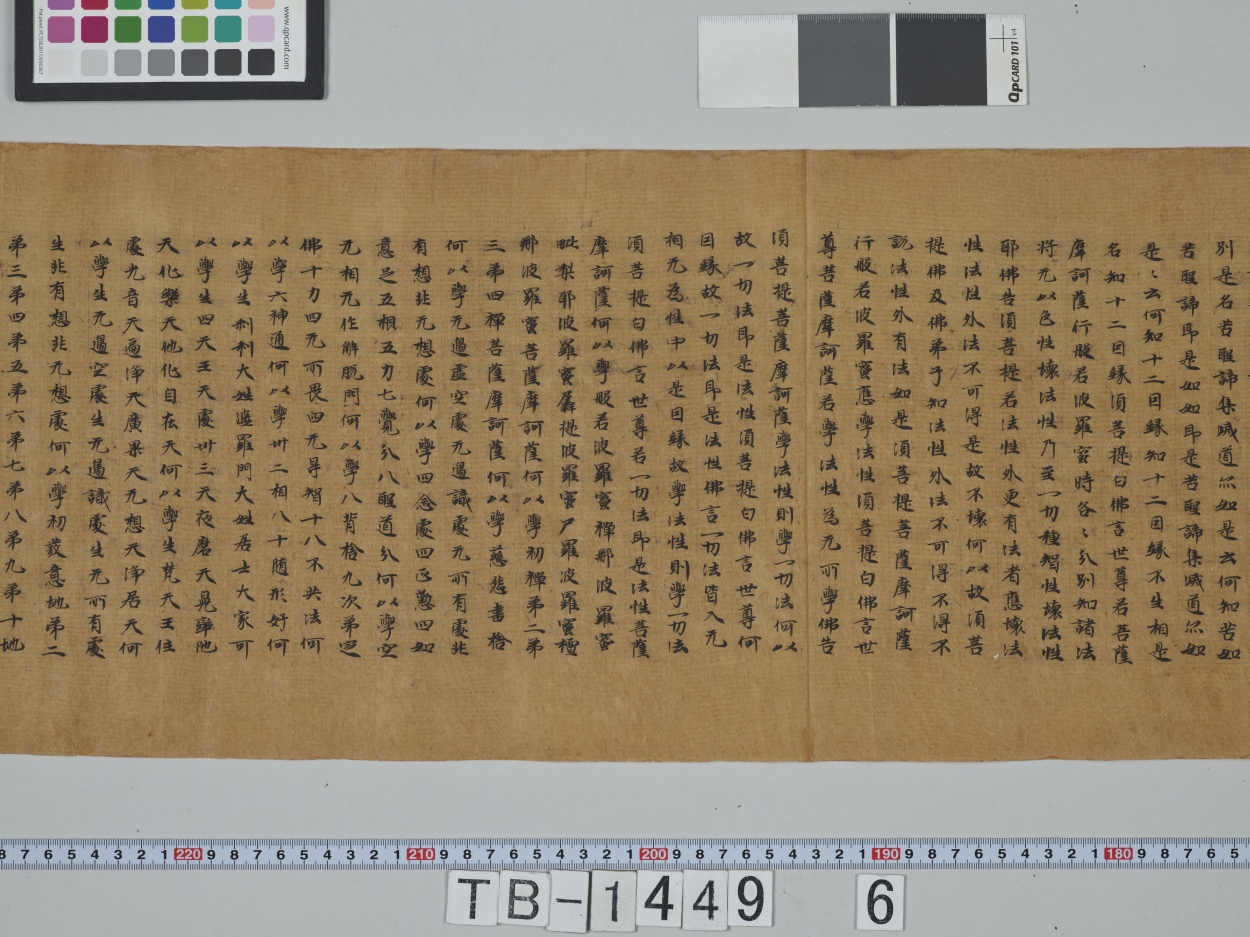 別是名苦聖諦集滅道亦如是云何知苦如
苦聖諦即是如如即是苦聖諦集滅道亦如
是〻云何知十二因緣知十二因緣不生相是
名知十二因緣須菩提白佛言世尊若菩薩
摩訶薩行般若波羅蜜時各〻分別知諸法
將无以色性壞法性乃至一切種智性壞法性
耶佛告須菩提若法性外更有法者應壞法
性法性外法不可得是故不壞何以故須菩
提佛及佛弟子知法性外法不可得不得不
說法性外有法如是須菩提菩薩摩訶薩
行般若波羅蜜應學法性須菩提白佛言世
尊菩薩摩訶薩若學法性為无所學佛告
須菩提菩薩摩訶薩學法性則學一切法何以
故一切法即是法性須菩提白佛言世尊何
因緣故一切法即是法性佛言一切法皆入无
相无為性中以是因緣故學法性則學一切法
須菩提白佛言世尊若一切法即是法性菩薩
摩訶薩何以學般若波羅蜜禪那波羅蜜
毗梨耶波羅蜜羼提波羅蜜尸羅波羅蜜檀
那波羅蜜菩薩摩訶薩何以學初禪第二第
三第四禪菩薩摩訶薩何以學慈悲喜捨
何以學无邊虛空處无邊識處无所有處非
有想非无想處何以學四念處四正懃四如
意足五根五力七覺分八聖道分何以學空
无相无作解脫門何以學八背捨九次第定
佛十力四无所畏四无㝵智十八不共法何
以學六神通何以學卅二相八十随形好何
以學生剎利大姓婆羅門大姓居士大家何
以學生四天王天處卅三天夜磨天兜率陁
天化樂天他化自在天何以學生梵天王住
處光音天遍淨天廣果天无想天淨居天何
以學生无邊空處生无邊識處生无所有處
生非有想非无想處何以學初發意地第二
第三第四第五第六第七第八第九第十地
www.qpcard.com
QPCARD 101 v4
8 7 6 5 4 3 2 1 220 9 8 7 6 5 4 3 2 1 210 9 8 7 6 5 4 3 2 1 200 9 8 7 6 5 4 3 2 1 190 9 8 7 6 5 4 3 2 1 180 9 8 7 6 5
TB-1449 6